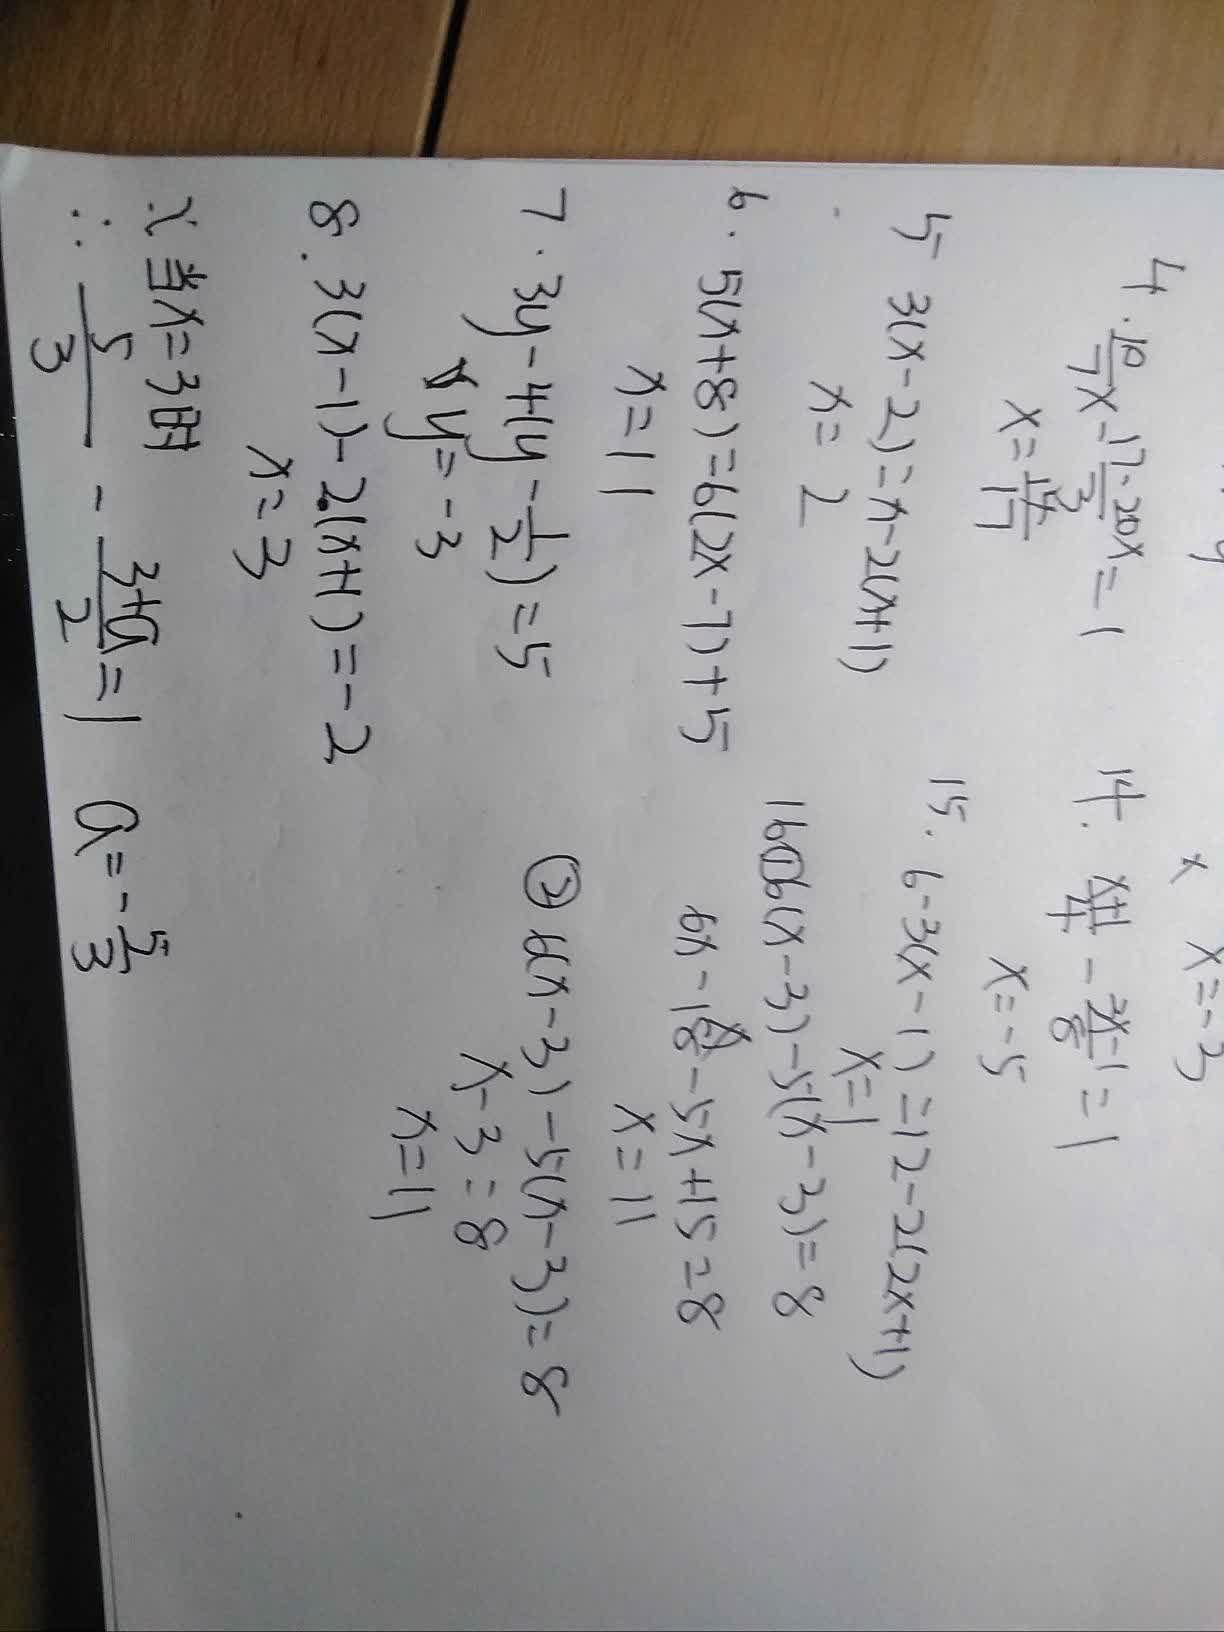 4. 10/7 x - 17-20x/3 = 1
x = 14/17
5 3(x-2)=x-2(x+1)
x= 2
6. 5(x+8)=6(2x-7)+5
x=11
7. 3y-4(y-1/2)=5
y=-3
8. 3(x-1)-2(x+1)=-2
x=3
∵当x=3时
∴ 5/3 - 3+a/2=1 a=-5/3
x=-3
14. x+1/4 - 3x-1/8=1
x=-5
15. 6-3(x-1)=12-2(2x+1)
x=1
16①6(x-3)-5(x-3)=8
6x-18-5x+15=8
x=11
② 6(x-3)-5(x-3)=8
x-3=8
x=11